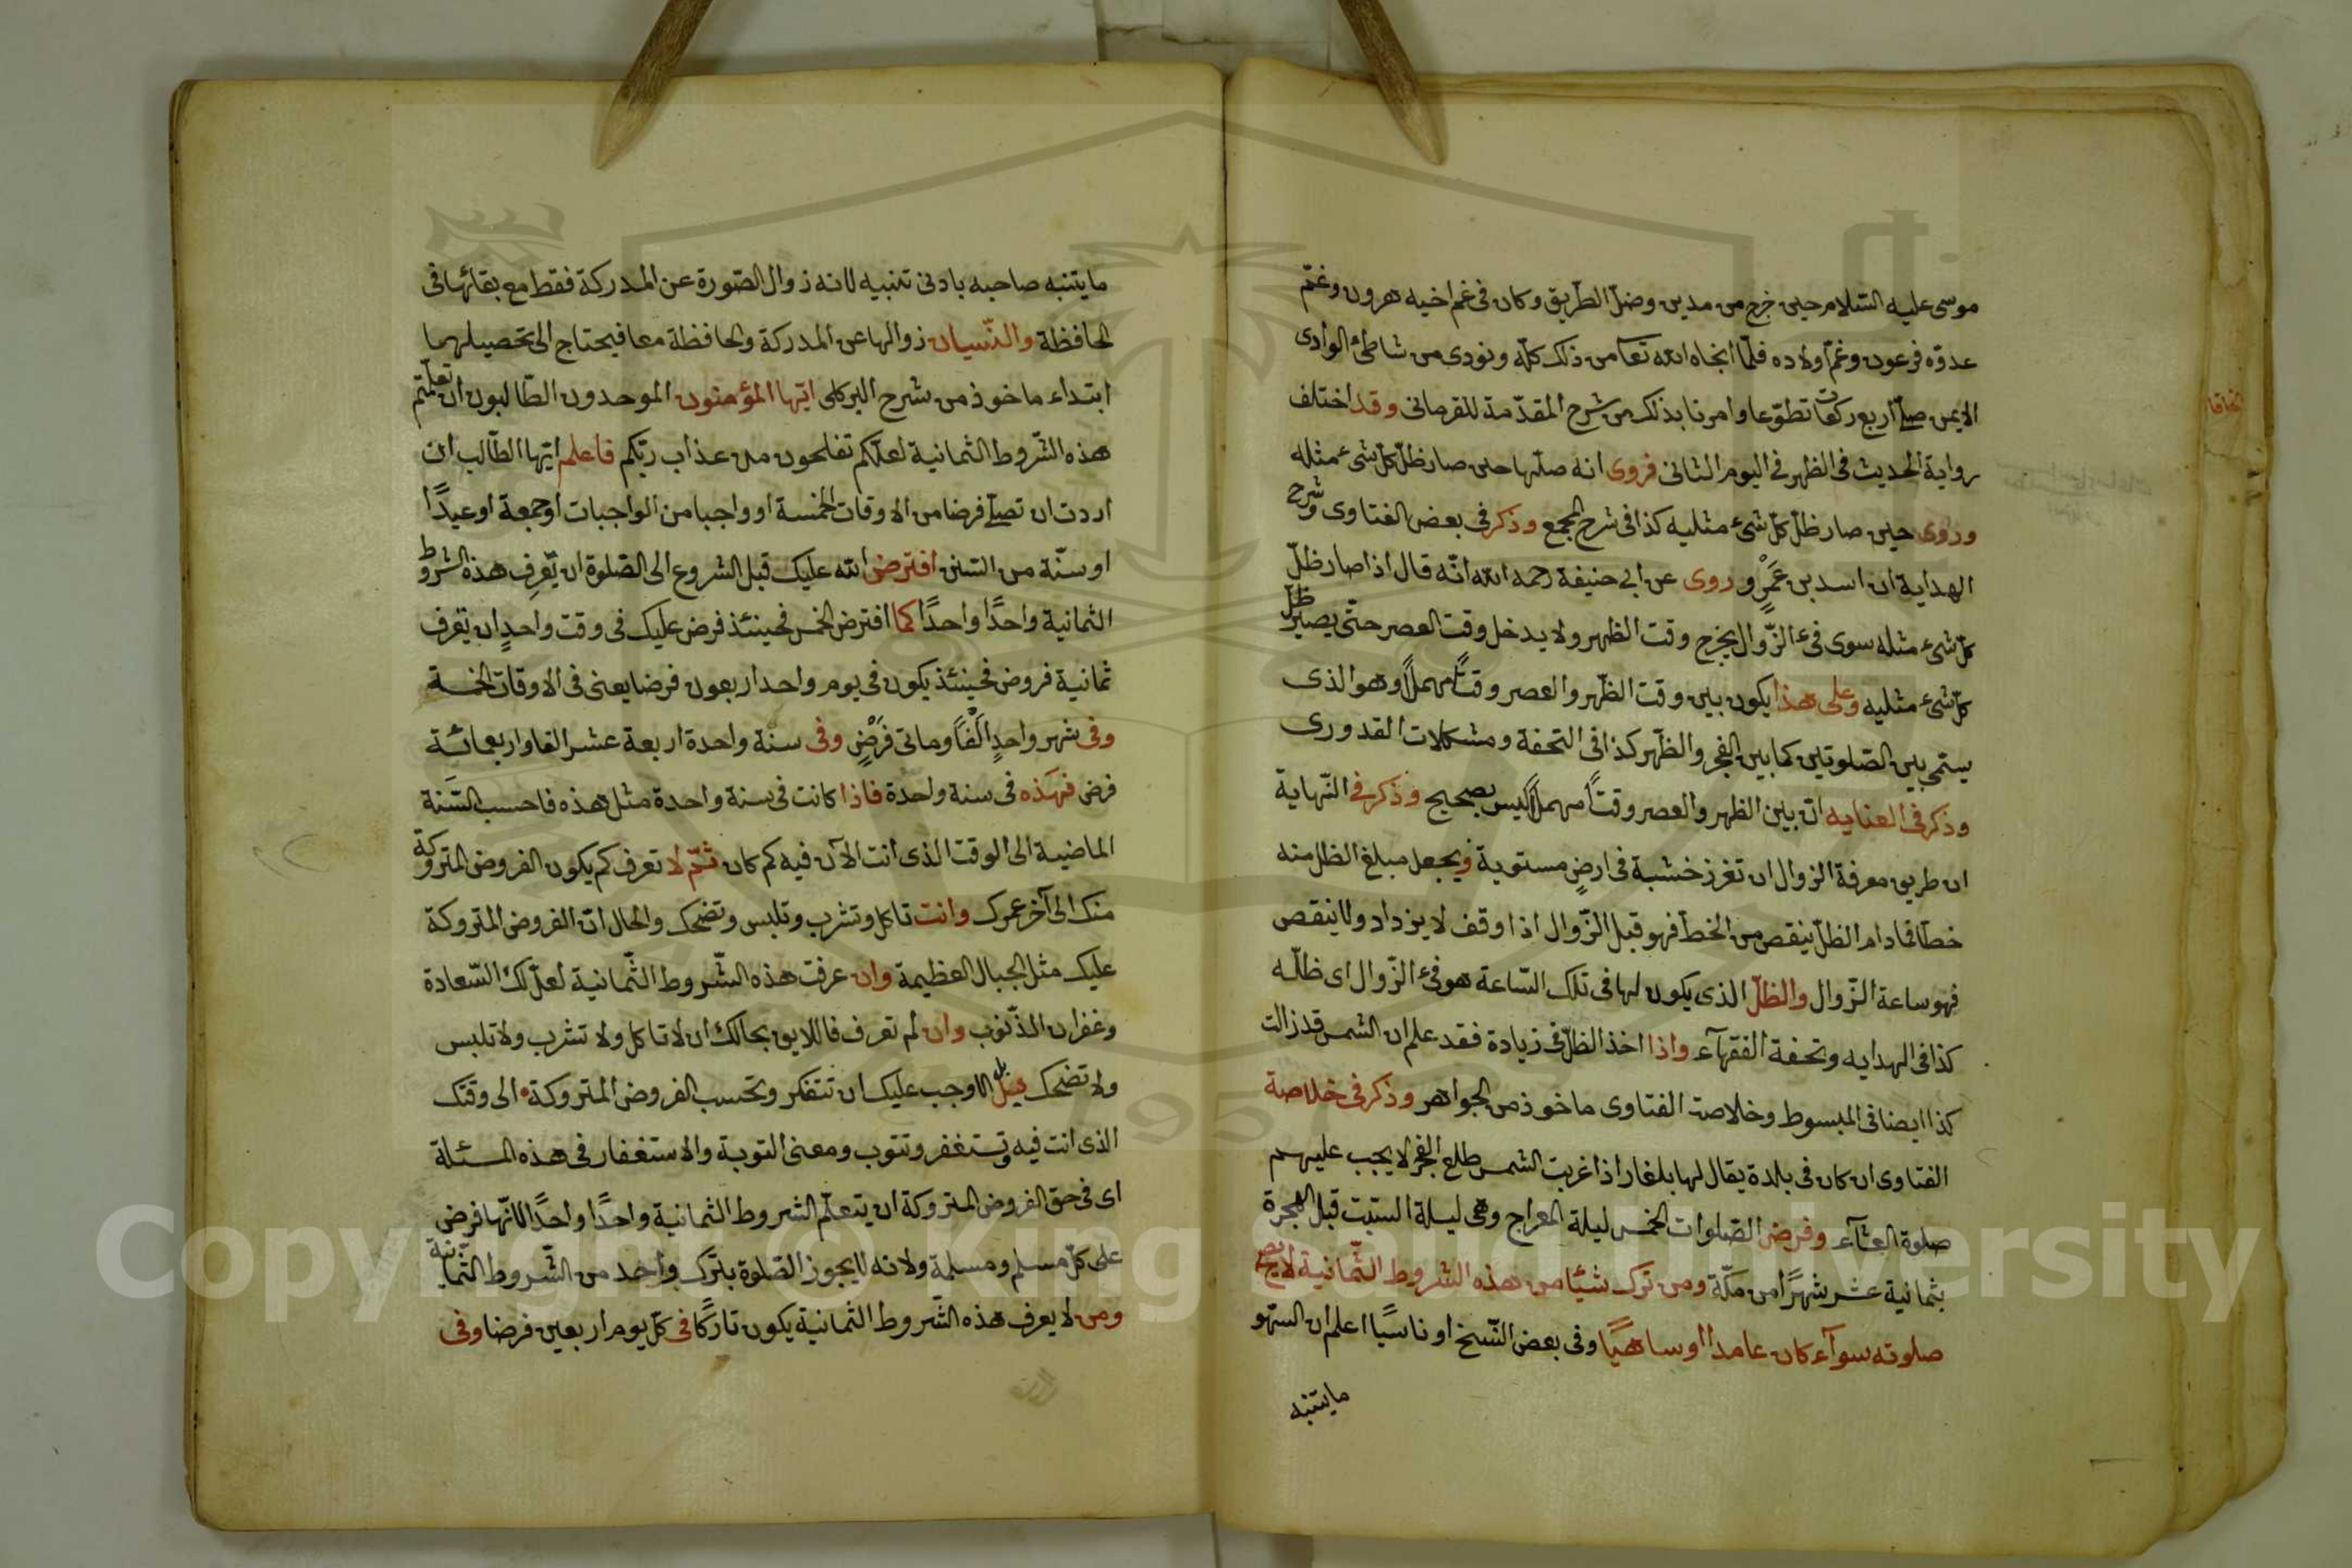 موسى عليه السّلام حين خرج من مدين وضلّ الطّريق وكان فى غم اخيه هرون وغمّ
عدوّه فرعون وغمّ اولاده فلمّا انجاه الله تعا من ذلك كلّه ونودى من شاطئ الوادى
الايمن صلّى اربع ركعات تطوّعا وامرنا بذلك من شرح المقدّمة للقرمانى وقد اختلف
رواية الحديث فى الظهر فى اليوم الثانى فروى انه صلّيها حين صار ظلّ كلّ شىء مثله
وروى حين صار ظلّ كلّ شىء مثليه كذا فى شرح المجمع وذكر فى بعض الفتاوى وشرح
الهداية ان اسد بن عَمْرٍو روى عن ابى حنيفة رحمه الله انّه قال اذا صار ظلّ
كلّ شىء مثله سوى فىء الزّوال يخرج وقت الظهر ولا يدخل وقت العصر حتّى يصير ظلّ
كلّ شىء مثليه وعلى هذا يكون بين وقت الظّهر والعصر وقتًا مهملًا وهو الذى
يسمّى بين الصّلوتين كما بين الفجر والظّهر كذا فى التحفة ومشكلات القدورى
وذكر فى العنايه انّ بين الظهر والعصر وقتًا مهملًا ليس بصحيح وذكر فى النّهاية
ان طريق معرفة الزوال ان تغرز خشبة فى ارضٍ مستوية ويجعل مبلغ الظل منه
خطّا فما دام الظلّ ينقص من الخطّ فهو قبل الزّوال اذا وقف لا يزداد ولا ينقص
فهو ساعة الزّوال والظلّ الذى يكون لها فى تلك السّاعة هو فىء الزّوال اى ظلّه
كذا فى الهدايه وتحفة الفقهآء واذا اخذ الظلّ فى زيادة فقد علم ان الشمس قد زالت
كذا ايضا فى المبسوط وخلاصت الفتاوى ماخوذ من الجواهر وذكر فى خلاصة
الفتاوى ان كان فى بلدة يقال لها بلغار اذا غربت الشمس طلع الفجر لا يجب عليهم
صلوة العشآء وفرض الصّلوات الخمس ليلة المعراج وهى ليلة السّبت قبل الهجرة
بثمانية عشر شهرًا من مكّة ومن ترك شيئا من هذه الشروط الثّمانية لا يصح
صلوته سوآء كان عامدا او ساهيًا وفى بعض النّسخ او ناسيًا اعلم ان السّهو
مايتنبه
مايتنبه صاحبه بادنى تنبيه لانه زوال الصّورة عن المدركة فقط مع بقائها فى
الحافظة والنّسيان زوالها عن المدركة والحافظة معا فيحتاج الى تحصيلهما
ابتداء ماخوذ من شرح البركلى ايّها المؤمنون الموحدون الطّالبون ان تعلّمتم
هذه الشّروط الثمانية لعلّكم تفلحون من عذاب ربّكم فاعلم ايّها الطّالب ان
اردت ان تصلّى فرضا من الاوقات الخمسة او واجبا من الواجبات او جمعة او عيدًا
او سنّة من السنن افترض الله عليك قبل الشروع الى الصّلوة ان تَعرِف هذه الشروط
الثمانية واحدًا واحدًا كما افترض الخمس فحينئذ فرض عليك فى وقت واحدٍ ان تعرف
ثمانية فروض فحينئذ يكون فى يوم واحد اربعون فرضا يعنى فى الاوقات الخمسة
وفى شهر واحدٍ اَلْفًا ومأتى فَرْضٍ وفى سنة واحدة اربعة عشر الفا واربعمائة
فرض فهَذه فى سنة واحدة فاذا كانت فى سنة واحدة مثل هذه فاحسب السَنة
الماضية الى الوقت الذى انت الآن فيه كم كان ثمّ لا تعرف كم يكون الفروض المتروكة
منك الى آخر عمرك وانت تاكل وتشرب وتلبس وتضحك والحال انّ الفروض المتروكة
عليك مثل الجبال العظيمة وان عرفت هذه الشّروط الثّمانية لعلّ لك السّعادة
وغفران الذّنوب وان لم تعرف فاللايق بحالك ان لا تاكل ولا تشرب ولا تلبس
ولا تضحك بل الاوجب عليك ان تتفكر وتحسب الفروض المتروكة الى وقتك
الذى انت فيه وتستغفر وتتوب ومعنى التوبة والاستغفار فى هذه المسئلة
اى فى حق الفروض المتروكة ان يتعلّم الشروط الثمانية واحدًا واحدًا لانّها فرض
على كلّ مسلم ومسلمة ولانه لا يجوز الصّلوة بترك واحد من الشّروط الثّمانية
ومن لا يعرف هذه الشّروط الثمانية يكون تاركًا فى كلّ يوم اربعين فرضا وفى
Copyright © King Saud University
1957